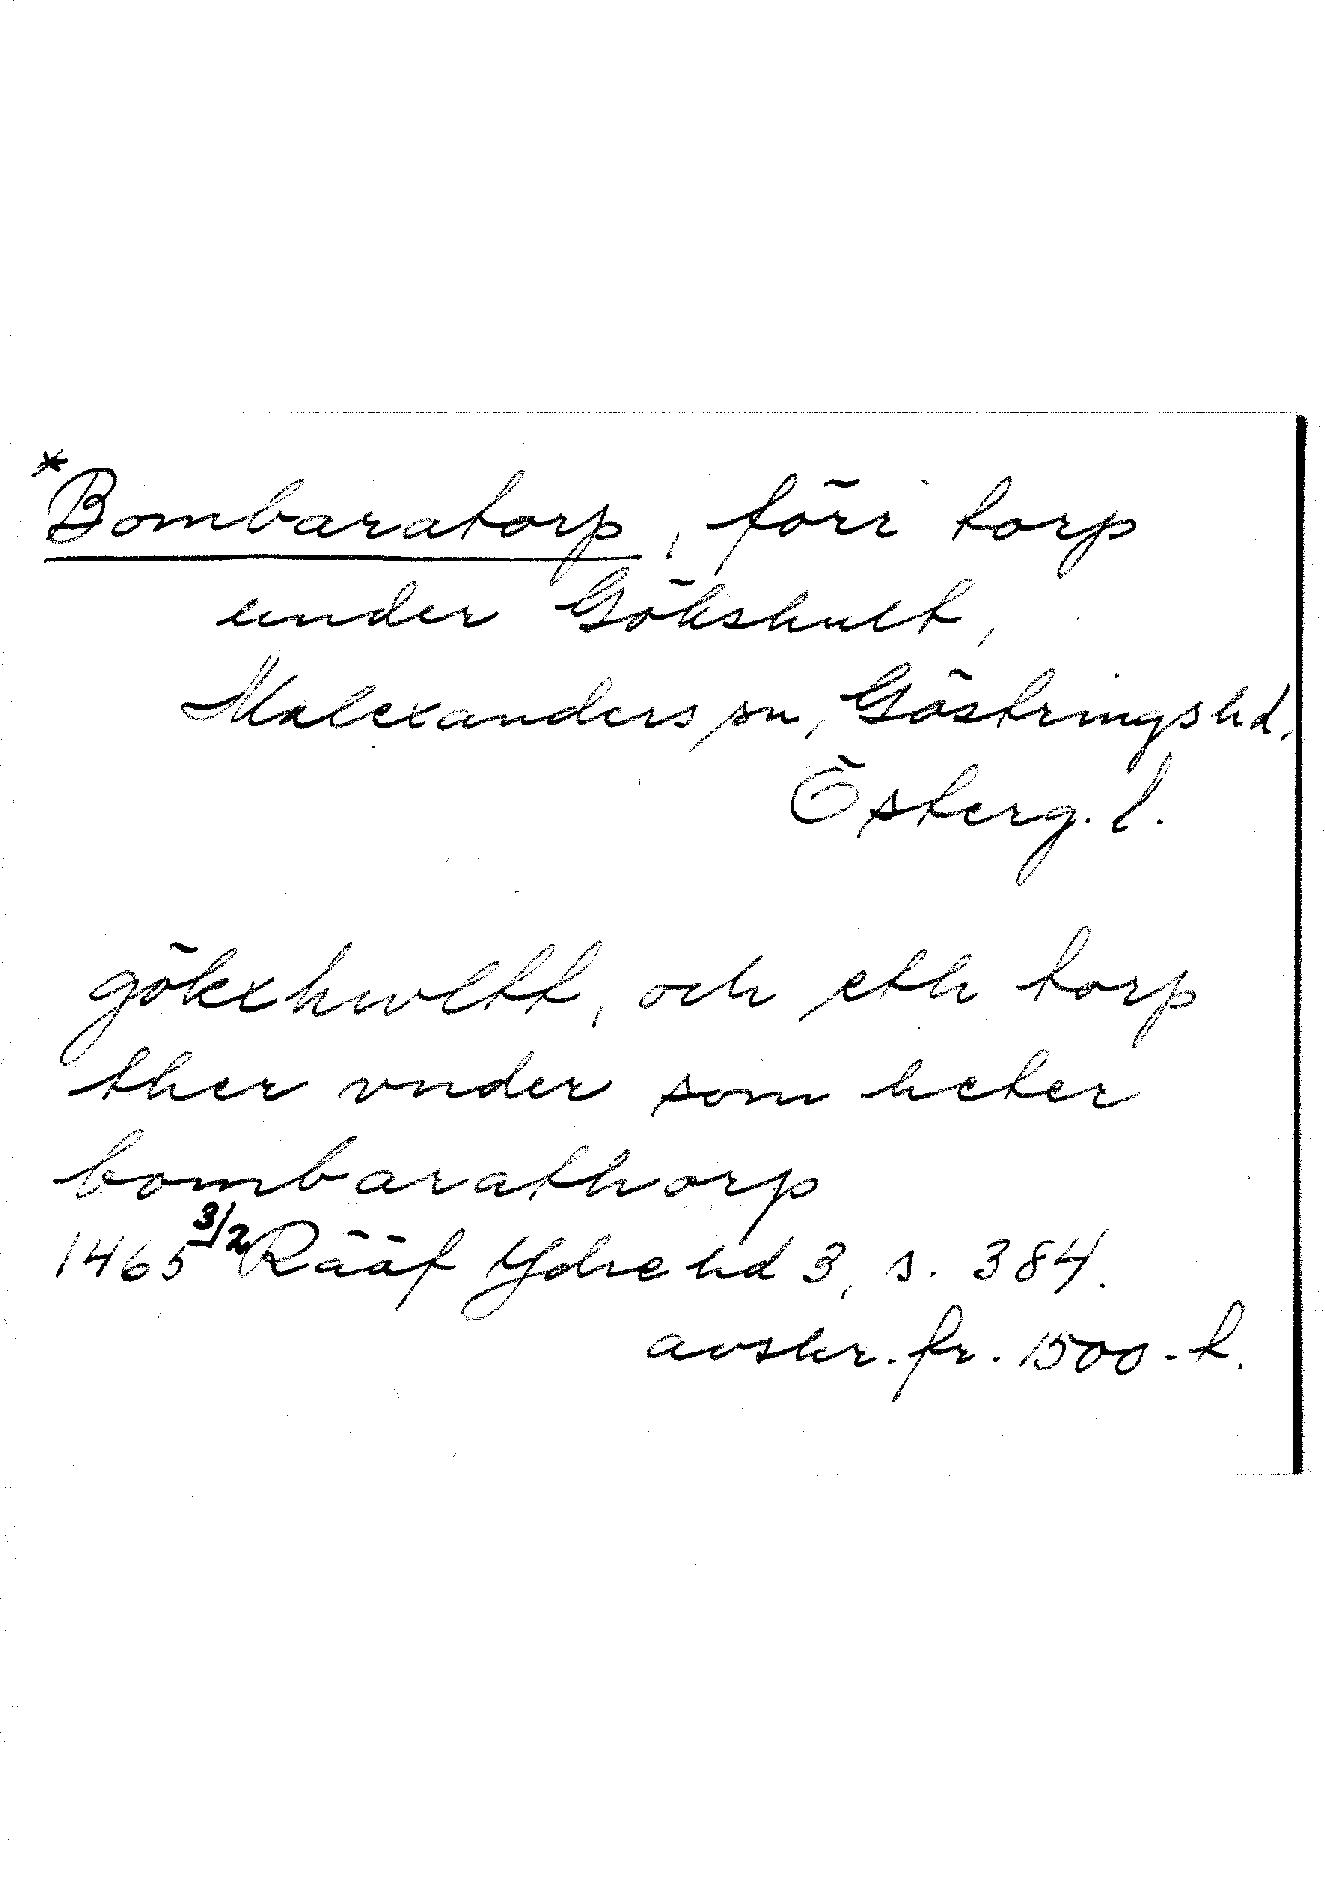 *Bombaratorp, förr torp
under Gökshult,
Malexanders sn, Göstrings hd.
Österg. l.
gökxhwltt, och eth torp
ther vnder som heter
bombarathorp
1465 3/2 Rääf Ydre hd 3, s. 384.
avskr. fr. 1500-t.